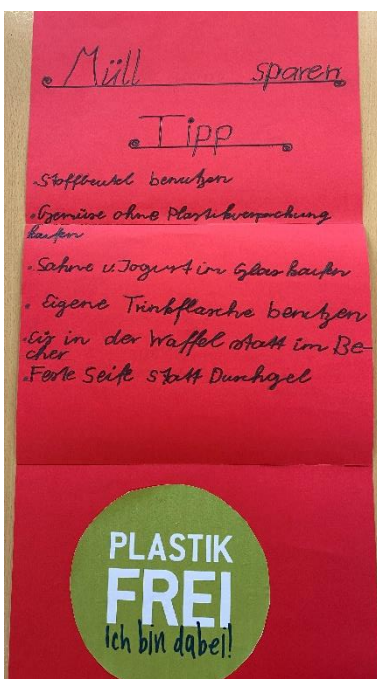 Müll sparen
Tipp
·Stoffbeutel benutzen
·Gemüse ohne Plastikverpackung
kaufen
·Sahne u. Jogurt im Glas kaufen
·Eigene Trinkflasche benutzen
·Eis in der Waffel statt im Be-
cher
·Feste Seife statt Duschgel
PLASTIK
FREI
Ich bin dabei!